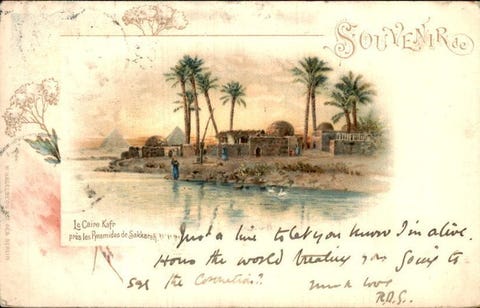 SOUVENIR de
Le Caire Kafr
près les Pyramides de Sakkarah
Just a line to let you know I'm alive.
Hows the world treating you Going to
see the Coronation?
much love
R.D.G.